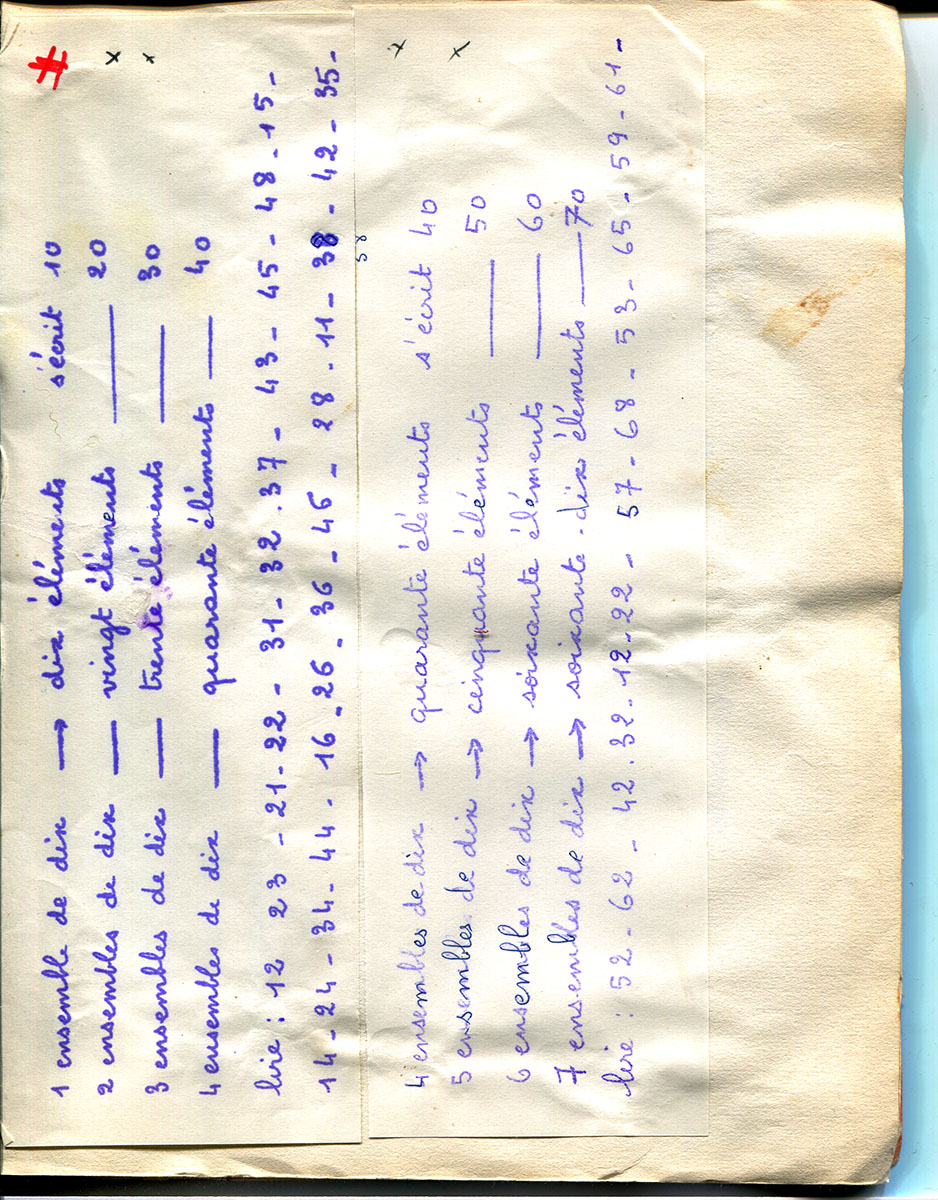 1 ensemble de dix → dix éléments s'écrit 10
2 ensembles de dix — vingt éléments — 20
3 ensembles de dix — trente éléments — 30
4 ensembles de dix — quarante éléments — 40
lire : 12 23 - 21 - 22 - 31 - 32 . 37 - 43 - 45 - 48 - 15 -
14 - 24 - 34 - 44 . 16 - 26 - 36 - 46 - 28 . 11 - 38 - 42 - 35 -
58
4 ensembles de dix → quarante éléments s'écrit 40
5 ensembles de dix → cinquante éléments — 50
6 ensembles de dix → soixante éléments — 60
7 ensembles de dix → soixante-dix éléments — 70
lire : 52 - 62 - 42 . 32 - 12 - 22 - 57 - 68 - 53 - 65 - 59 - 61 -